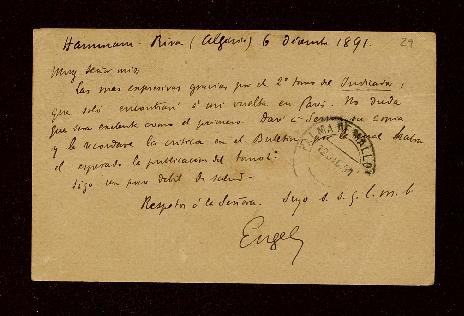 Hammam-Rira (Algérie) 6 décembre 1891.
29
Muy Señor mio,
Las mas expresivas gracias por el 2º tomo del
que solo encontraré á mi vuelta en Paris. No duda
que sera excelente como el primero. Daré á su
y le recordaré la critica en el Boletin
el esperado la publicacion del tomo 2º.
Sigo un poco debil de salud.
Respetos á la Señora. Suyo s. s. q. b. s. m.
Engel
PALMA DE MALLORCA